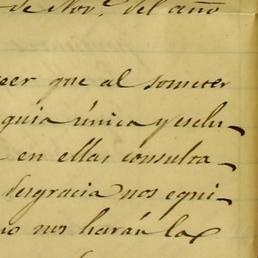 de Nov.e del año
eer que al someter
guia única y esclu-
en ellas consulta-
desgracia nos equi-
no nos harán la